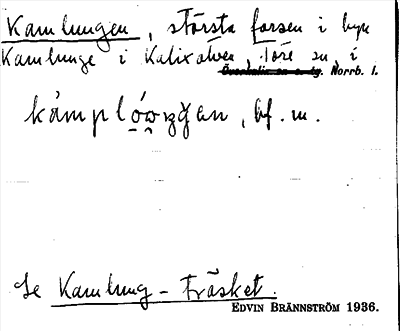 Kamlungen, största forsen i byn
Kamlunge i Kalixälven, Töre sn, i
Överkalix sn o. tg. Norrb. l.
kámplówŋǥan, bf. m.
Se Kamlung-träsket.
EDVIN BRÄNNSTRÖM 1936.